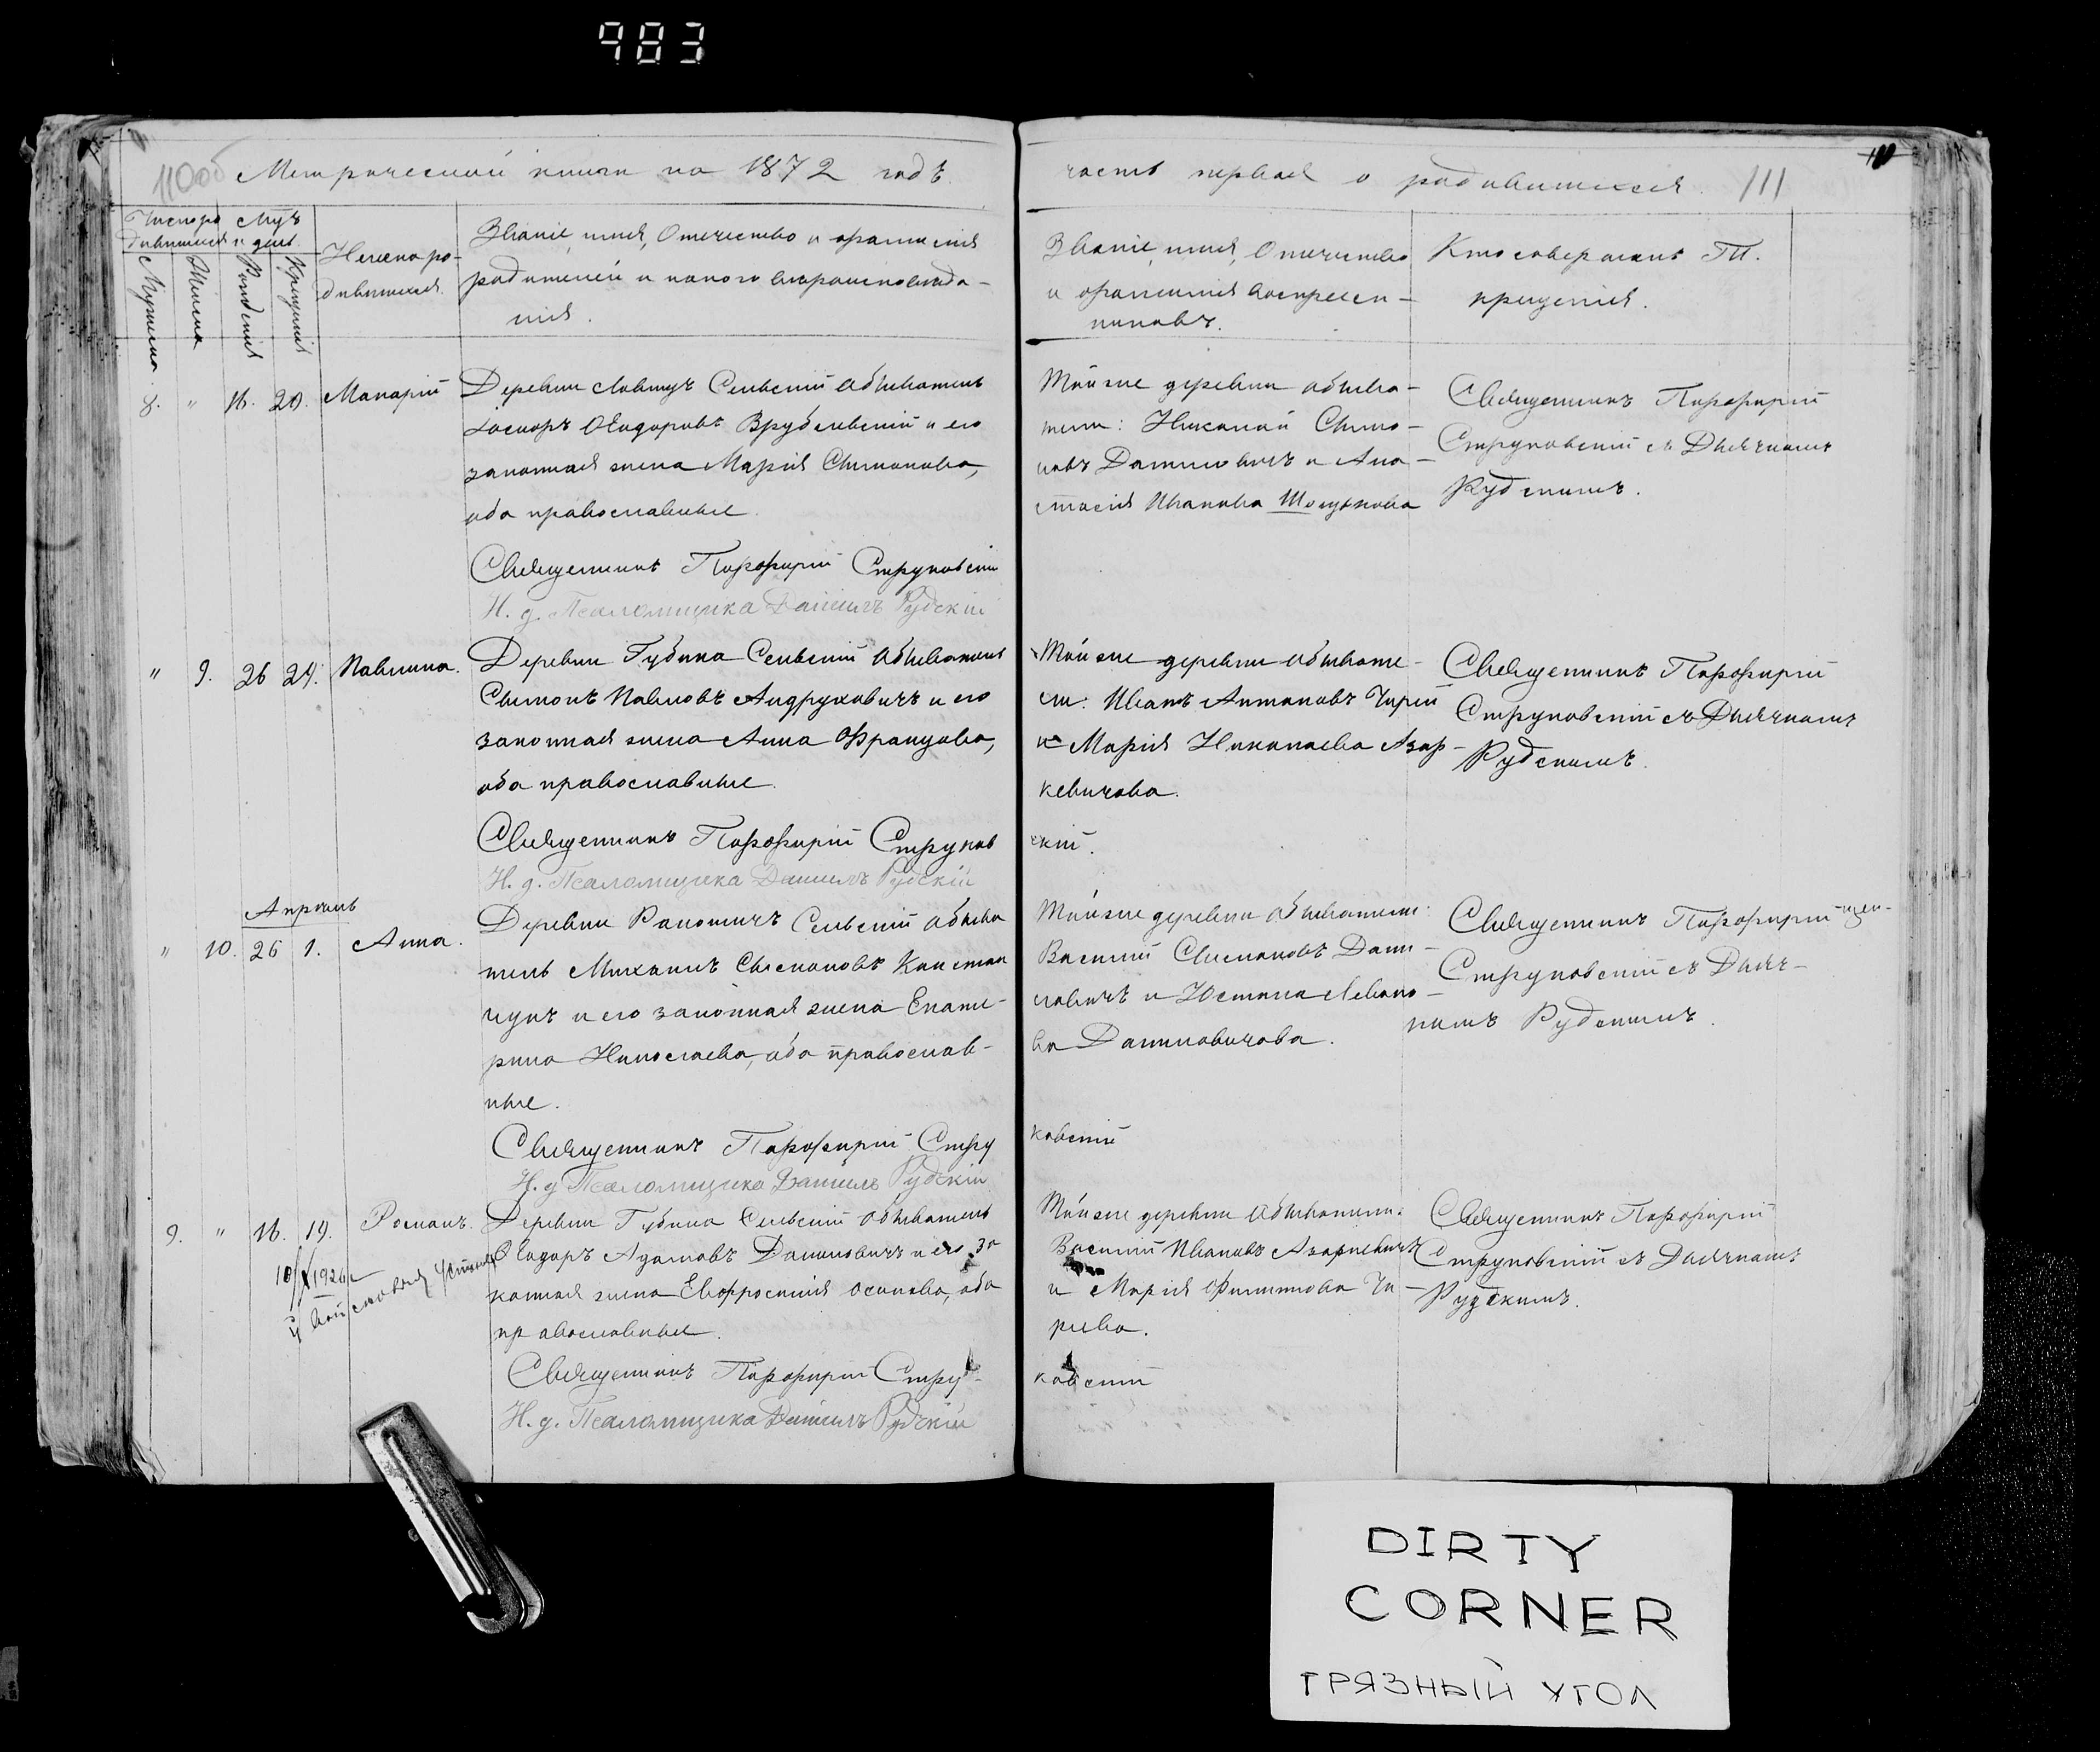 983
110об Метрической книги на 1872 годъ
часть первая о родившихся. 111
Число ро
дившихся
Мцъ
и день.
Мужеска
Женска
Рожденія
Крещенія
Имена ро-
дившихся.
Званіе, имя, отечество и фамилія
родителей и какого вѣроисповѣда-
нія.
Званіе, имя, Отечество
и фамилія воспреем-
никовъ.
Кто совершалъ Т.
крещенія.
8. " 16. 20. Макарій
Деревни Ловтуч Сельскій обыватель
Іосифъ Ѳеодоровъ Врублевскій и его
законная жена Марія Симонова,
оба православные.
Священникъ Порфирій Струковскій
И. д. Псаломщика Даніилъ Рудскій
Той же деревни обыва-
тели: Николай Симо-
новъ Даниловичъ и Ана-
стасія Иванова
Священникъ Порфирій
Струковскій съ Дьячкомъ
Рудскимъ.
" 9. 26 24. Павлина.
Деревни Губина Сельскій обыватель
Симонъ Павловъ Андруковичъ и его
законная жена Анна Францова,
оба православные.
Священникъ Порфирій Струков
скій.
И. д. Псаломщика Даніилъ Рудскій
Той же деревни обывате-
ли: Иванъ Антоновъ Чирій
и Марія Николаева Азар-
кевичова.
Священникъ Порфирій
Струковскій съ Дьячкомъ
Рудскимъ.
Апрѣль
" 10. 26 1. Анна.
Деревни Ракотичъ Сельскій обыва
тель Михаилъ Симоновъ Констан
чукъ и его законная жена Екате-
рина Николаева, оба православ-
ные.
Священникъ Порфирій Стру
ковскій
И. д. Псаломщика Даніилъ Рудскій
Той же деревни обыватели:
Василій Симоновъ Дани-
ловичъ и Юстина Левко-
ва Даниловичова.
Священникъ Порфирій
Струковскій съ Дьяч-
комъ Рудскимъ.
9. " 16. 19. Романъ.
Деревни Губина Сельскій обыватель
Ѳеодоръ Адамовъ Даниловичъ и его за
конная жена Евфросинія Осипова, оба
православные.
Священникъ Порфирій Стру-
ковскій
И. д. Псаломщика Даніилъ Рудскій
Той же деревни обыватели:
Василій Ивановъ Азаркевичъ
и Марія Филиппова Чи-
риева.
Священникъ Порфирій
Струковскій съ Дьячкомъ
Рудскимъ.
DIRTY
CORNER
ГРЯЗНЫЙ УГОЛ